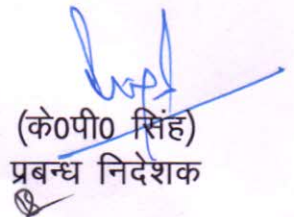 (के०पी० सिंह)
प्रबन्ध निदेशक